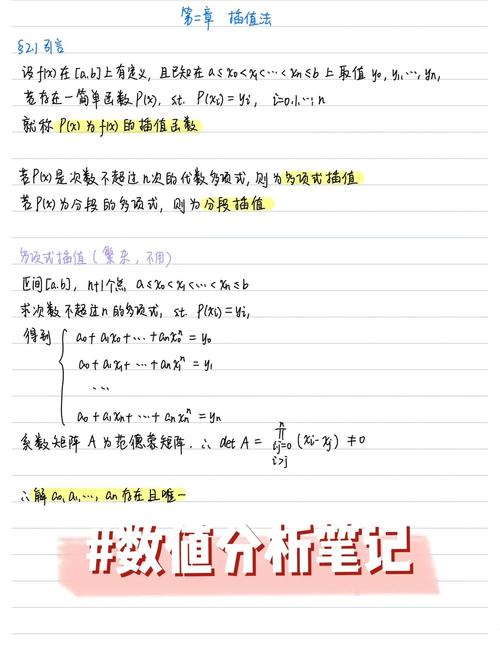 第二章 插值法
§2.1 引言
设f(x)在[a,b]上有定义,且已知在a≤x₀<x₁<…<xₙ≤b上取值y₀,y₁,…,yₙ,
若存在一简单函数P(x). st. P(xᵢ)=yᵢ, i=0,1,…,n
就称P(x)为f(x)的插值函数
若P(x)是次数不超过n次的代数多项式,则为多项式插值
若P(x)为分段的多项式,则为分段插值
多项式插值(繁杂,不用)
区间[a,b], n+1个点 a≤x₀<x₁<…<xₙ≤b
求次数不超过n的多项式, st. P(xᵢ)=yᵢ,
得到 { a₀+a₁x₀+…+aₙx₀ⁿ=y₀
a₀+a₁x₁+…+aₙx₁ⁿ=y₁
…
a₀+a₁xₙ+…+aₙxₙⁿ=yₙ
系数矩阵A为范德蒙矩阵. ∴ det A = ∏ⁿ_{i,j=0, i>j} (xᵢ-xⱼ) ≠0
∴解a₀,a₁,…,aₙ存在且唯一
#数值分析笔记